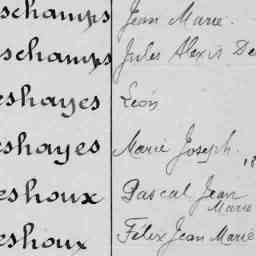 schamps Jean Marie.
schamps Jules Alexis De
eshayes Léon
eshayes Marie Joseph.
eshoux Pascal Jean
Marie
eshoux Felix Jean Marie